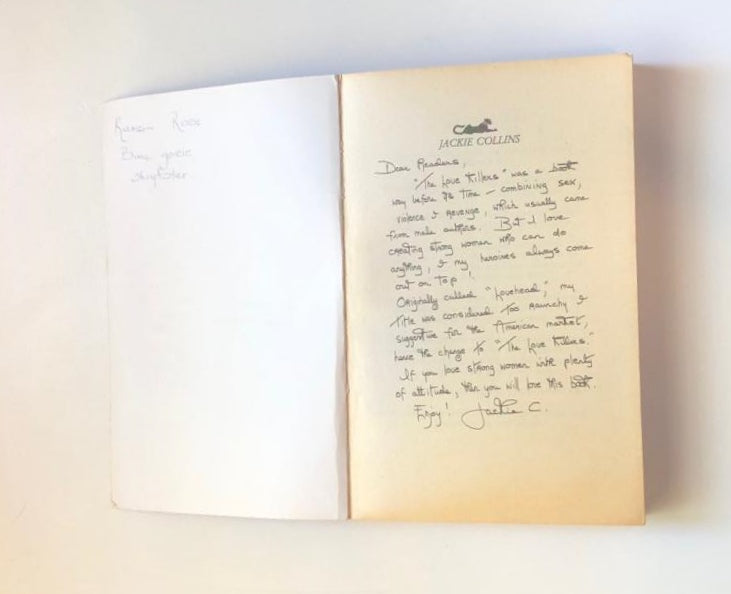 Rose
JACKIE COLLINS
Dear Readers,
"The Love Killers" was a book
way before its time – combining sex,
violence & revenge, which usually came
from male authors. But I love
creating strong women who can do
anything, & my heroines always come
out on top!
Originally called "Lovehead," my
title was considered too raunchy &
suggestive for the American market,
hence the change to "The Love Killers."
If you love strong women with plenty
of attitude, then you will love this book.
Enjoy! Jackie C.